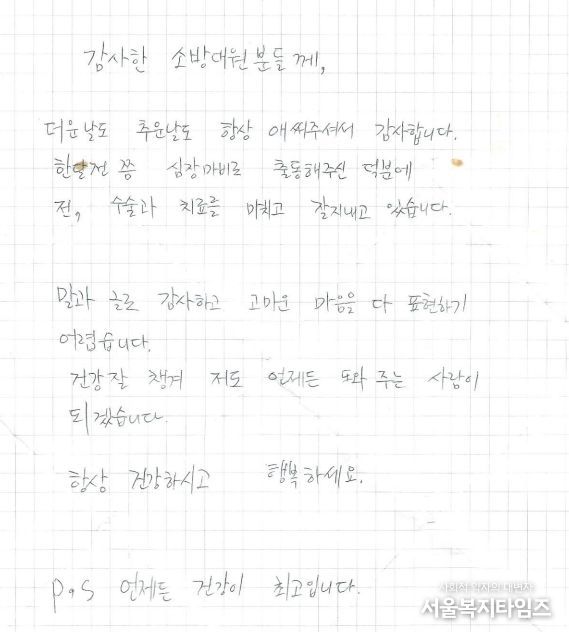 감사한 소방대원분들께,
더운날도 추운날도 항상 애써주셔서 감사합니다.
한달전 쯤 심장마비로 출동해주신 덕분에
전, 수술과 치료를 마치고 잘지내고 있습니다.
말과 글로 감사하고 고마운 마음을 다 표현하기
어렵습니다.
건강 잘 챙겨 저도 언제든 도와 주는 사람이
되겠습니다.
항상 건강하시고 행복하세요.
p.s 언제든 건강이 최고입니다.
사회적 약자의 대변자
서울복지타임즈